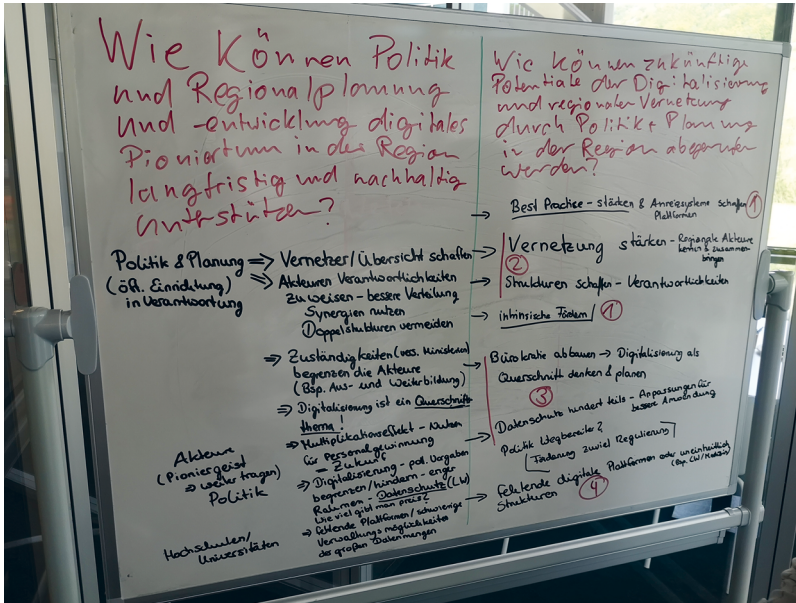 Wie Können Politik
und Regionalplanung
und -entwicklung digitales
Pioniertum in der Region
langfristig und nachhaltig
unterstützen?
Politik & Planung
(öff. Einrichtung)
in Verantwortung
⇒ Vernetzer/Übersicht schaffen
⇒ Akteuren Verantwortlichkeiten
zuweisen - bessere Verteilung
Synergien nutzen
Doppelstrukturen vermeiden
⇒ Zuständigkeiten (vers. Ministerien)
begrenzen die Akteure
(Bsp. Aus- und Weiterbildung)
⇒ Digitalisierung ist ein Querschnitts
thema!
⇒ Multiplikationseffekt - Nutzen
für Personalgewinnung
= Zukunft
⇒ Digitalisierung - pol. Vorgaben
begrenzen/hindern - enger
Rahmen - Datenschutz (LW)
Wie viel gibt man preis?
⇒ fehlende Plattformen/schwierige
Verwaltungsmöglichkeiten
der großen Datenmengen
Akteure
(Pioniergeist
⇒ weiter tragen)
Politik
Hochschulen/
Universitäten
Wie können zukünftige
Potentiale der Digitalisierung
und regionaler Vernetzung
durch Politik + Planung
in der Region abgerufen
werden?
→ Best Practice - stärken & Anreizsysteme schaffen 1
Plattformen
→ Vernetzung stärken - Regionale Akteure
kennen & zusammen-
bringen
2
→ Strukturen schaffen - Verantwortlichkeiten
→ intrinsische Fördern! 1
→ Bürokratie abbauen → Digitalisierung als
Querschnitt denken & planen
3
Datenschutz hindert teils - Anpassungen für
bessere Anwendung
→ Politik Wegbereiter?
Tendenz zuviel Regulierung
→ fehlende digitale Plattformen oder uneinheitlich
Strukturen 4